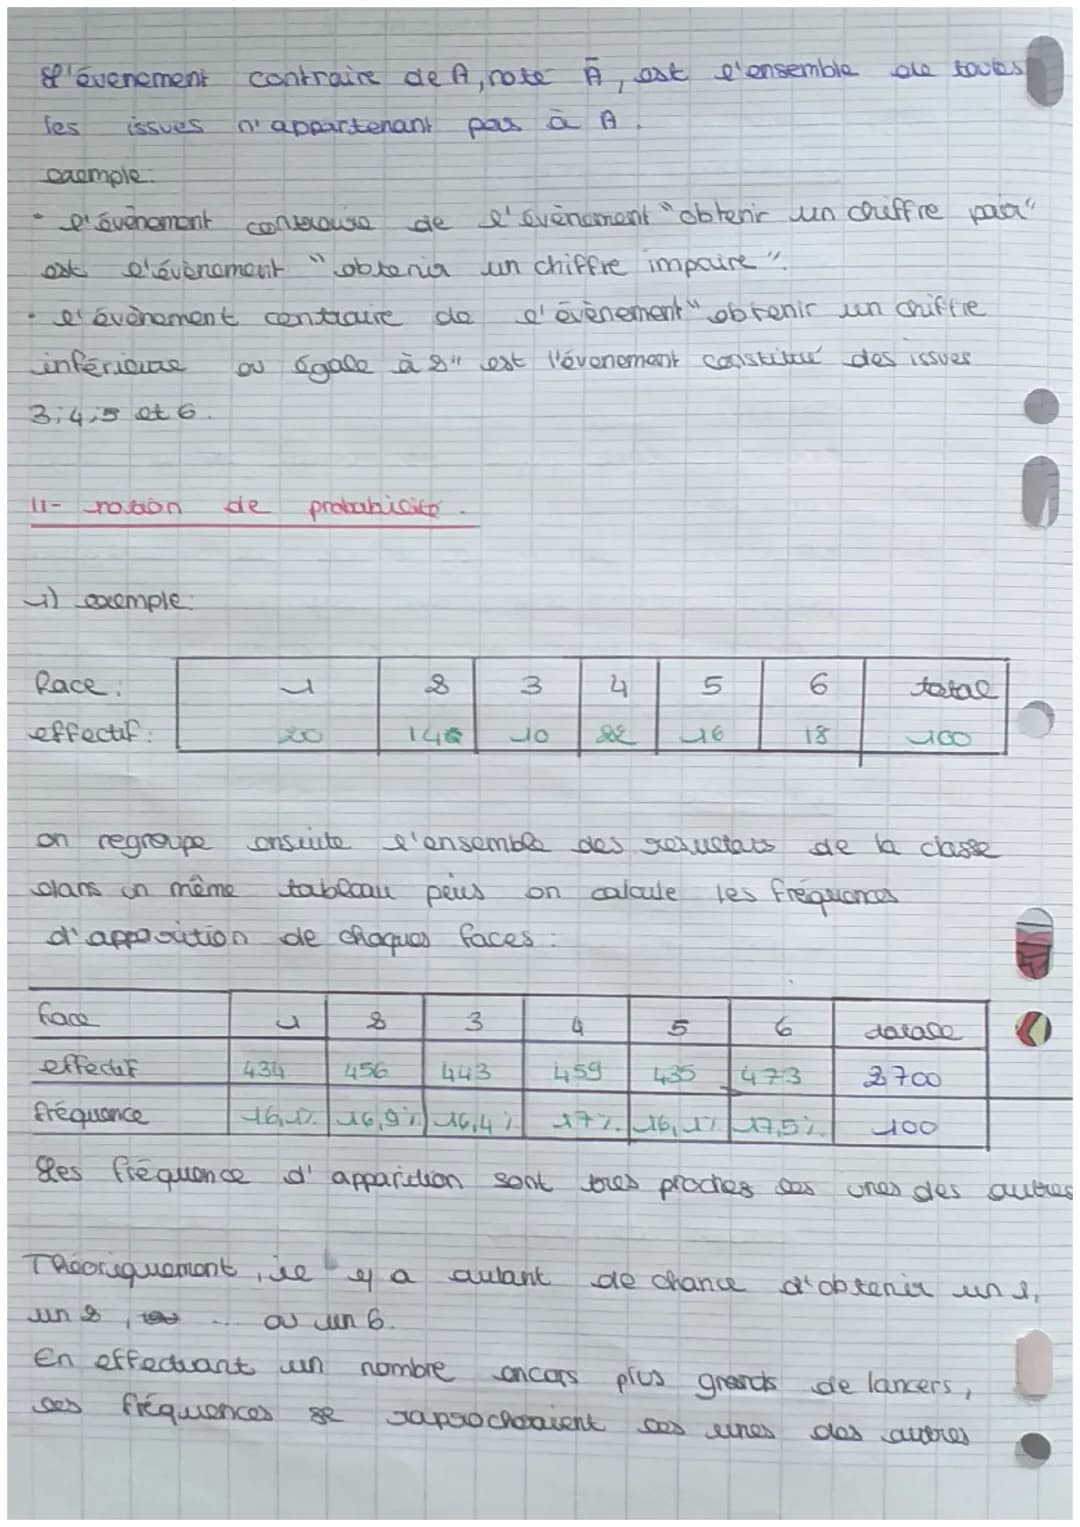 L'évenement contraire de A, note Ā, est l'ensemble de toutes
les issues n'appartenant pas à A.
exemple:
• l'évènement contraire de l'évènement "obtenir un chiffre pair"
est l'évènement "obtenir un chiffre impaire".
• l'évènement contraire de l'évènement "obtenir un chiffre
inférieure ou égale à 2" est l'évenement constitué des issues
3;4;5 et 6.
II- notion de probabilité.
1) exemple:
Face: 1 2 3 4 5 6 total
effectif: 20 14 10 22 16 18 100
on regroupe ensuite l'ensemble des resultats de la classe
dans un même tableau puis on calcule les fréquences
d'apparition de chaques faces:
face 1 2 3 4 5 6 totale
effectif 434 456 443 459 435 473 2700
fréquence 16,1% 16,9% 16,4% 17% 16,1% 17,5% 100
Les fréquence d'apparition sont tres proches les unes des autres
Théoriquement, il y a autant de chance d'obtenir un 1,
un 2, ... ou un 6.
En effectuant un nombre encors plus grands de lancers,
les fréquences se raprocheraient les unes des autres